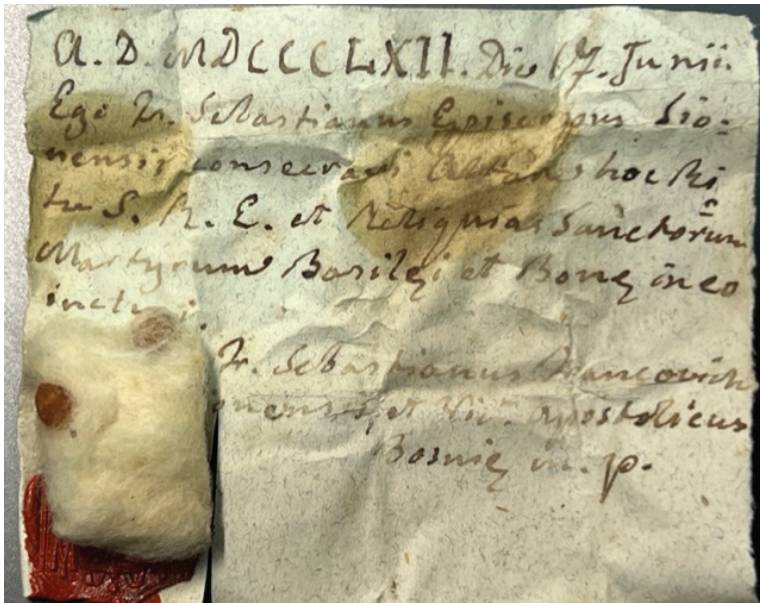 A. D. MDCCCLXII. Die 17. Junii.
Ego Fr. Sebastianus Episcopus Lio=
nensis consecravi Altare hoc Ri
tu S. R. E. et Reliquias Sanctorum
Martyrum Basilęi et Bonę in eo
inclusi.
Fr. Sebastianus Francovich
onensis, et Vic. apostolicus
Bosnię m. p.